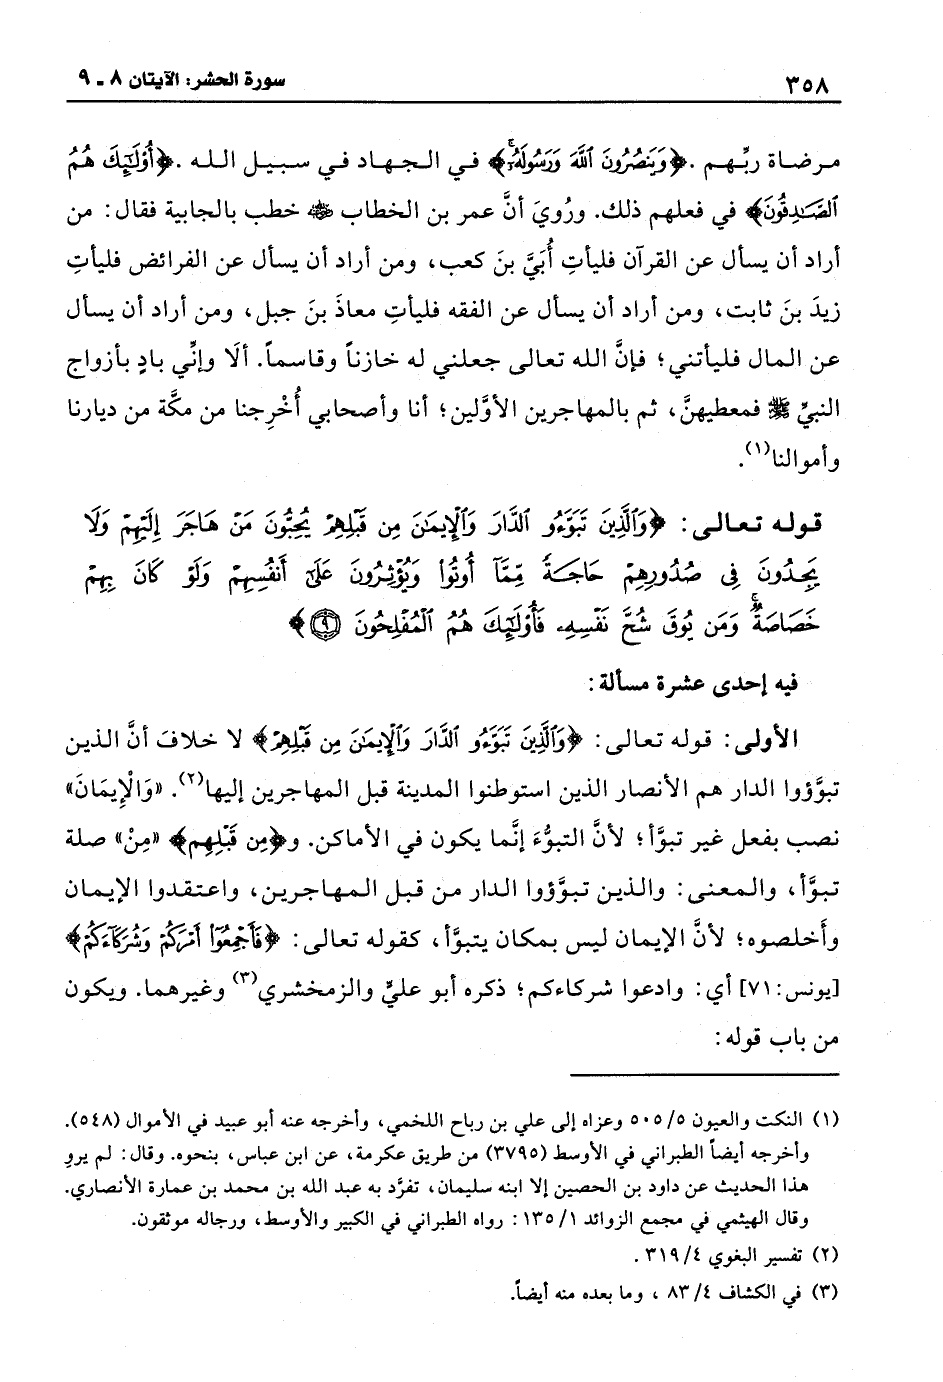 ٣٥٨ سورة الحشر: الآيتان ٨ - ٩
مرضاة ربِّهم. ﴿وَيَنصُرُونَ ٱللَّهَ وَرَسُولَهُۥٓۚ﴾ في الجهاد في سبيل الله. ﴿أُوْلَٰٓئِكَ هُمُ
ٱلصَّٰدِقُونَ﴾ في فعلهم ذلك. ورُويَ أنَّ عمر بن الخطاب ﷺ خطب بالجابية فقال: من
أراد أن يسأل عن القرآن فليأتِ أُبَيَّ بنَ كعب، ومن أراد أن يسأل عن الفرائض فليأتِ
زيدَ بنَ ثابت، ومن أراد أن يسأل عن الفقه فليأتِ معاذَ بنَ جبل، ومن أراد أن يسأل
عن المال فليأتني؛ فإنَّ الله تعالى جعلني له خازناً وقاسماً. ألَا وإنِّي بادٍ بأزواج
النبيِّ ﷺ فمعطيهنَّ، ثم بالمهاجرين الأوَّلين؛ أنا وأصحابي أُخْرِجنا من مكَّة من ديارنا
وأموالنا(١).
قوله تعالى: ﴿وَٱلَّذِينَ تَبَوَّءُو ٱلدَّارَ وَٱلْإِيمَٰنَ مِن قَبْلِهِمْ يُحِبُّونَ مَنْ هَاجَرَ إِلَيْهِمْ وَلَا
يَجِدُونَ فِى صُدُورِهِمْ حَاجَةً مِّمَّآ أُوتُواْ وَيُؤْثِرُونَ عَلَىٰٓ أَنفُسِهِمْ وَلَوْ كَانَ بِهِمْ
خَصَاصَةٌۚ وَمَن يُوقَ شُحَّ نَفْسِهِۦ فَأُوْلَٰٓئِكَ هُمُ ٱلْمُفْلِحُونَ ۝٩﴾
فيه إحدى عشرة مسألة:
الأولى: قوله تعالى: ﴿وَٱلَّذِينَ تَبَوَّءُو ٱلدَّارَ وَٱلْإِيمَٰنَ مِن قَبْلِهِمْ﴾ لا خلافَ أنَّ الذين
تبوَّؤوا الدار هم الأنصار الذين استوطنوا المدينة قبل المهاجرين إليها(٢). «وَالْإِيمَانَ»
نصب بفعل غير تبوَّأ؛ لأنَّ التبوُّءَ إنَّما يكون في الأماكن. و﴿مِن قَبْلِهِم﴾ «مِنْ» صلة
تبوَّأ، والمعنى: والذين تبوَّؤوا الدار من قبل المهاجرين، واعتقدوا الإيمان
وأخلصوه؛ لأنَّ الإيمان ليس بمكان يتبوَّأ، كقوله تعالى: ﴿فَأَجْمِعُوٓاْ أَمْرَكُمْ وَشُرَكَآءَكُمْ﴾
[يونس: ٧١] أي: وادعوا شركاءكم؛ ذكره أبو عليٍّ والزمخشري(٣) وغيرهما. ويكون
من باب قوله:
(١) النكت والعيون ٥/ ٥٠٥ وعزاه إلى علي بن رباح اللخمي، وأخرجه عنه أبو عبيد في الأموال (٥٤٨).
وأخرجه أيضاً الطبراني في الأوسط (٣٧٩٥) من طريق عكرمة، عن ابن عباس، بنحوه. وقال: لم يروِ
هذا الحديث عن داود بن الحصين إلا ابنه سليمان، تفرَّد به عبد الله بن محمد بن عمارة الأنصاري.
وقال الهيثمي في مجمع الزوائد ١/ ١٣٥ : رواه الطبراني في الكبير والأوسط، ورجاله موثقون.
(٢) تفسير البغوي ٤/ ٣١٩ .
(٣) في الكشاف ٤/ ٨٣ ، وما بعده منه أيضاً.